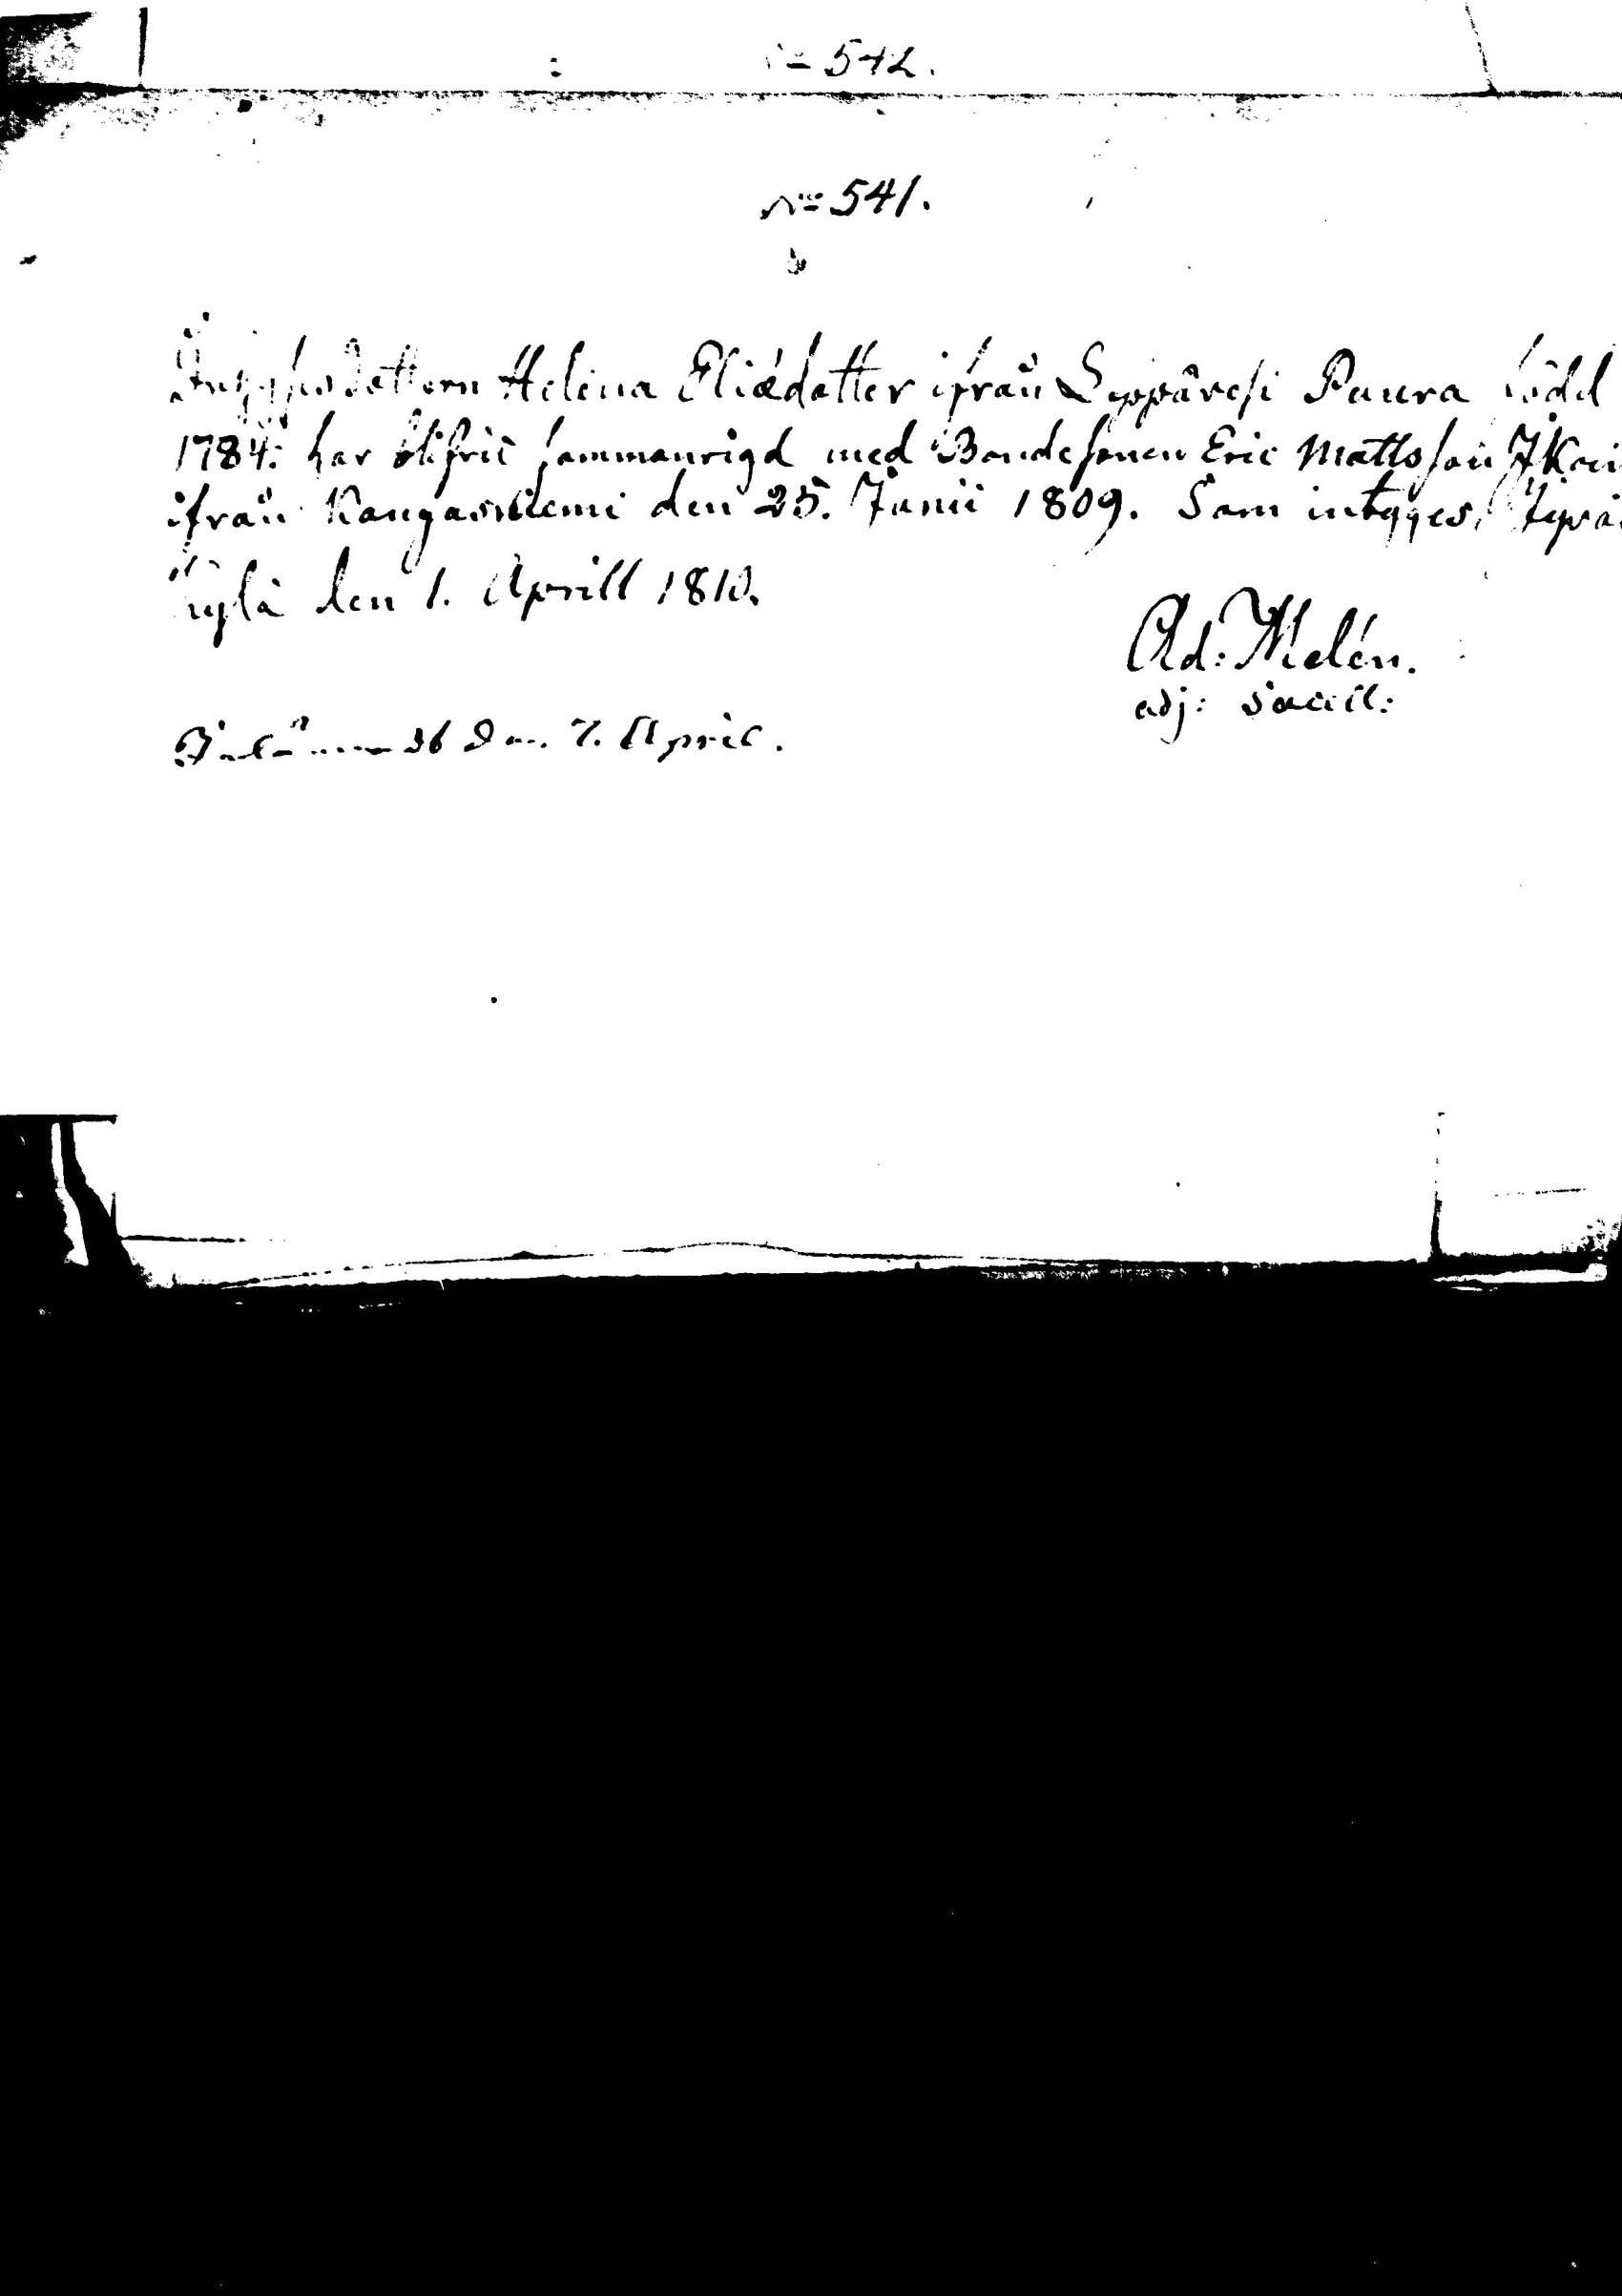 542.
No 541.
Helena Eliædotter ifrån Leppävesi Paura född
1784: har blifvit sammanvigd med Bondesonen Eric Mattsson
ifrån Kangasniemi den 25. Junii 1809. Som intygges,
kylä den 1. Aprill 1810.
Ad: Melén.
adj: Sacell:
den 7. April.